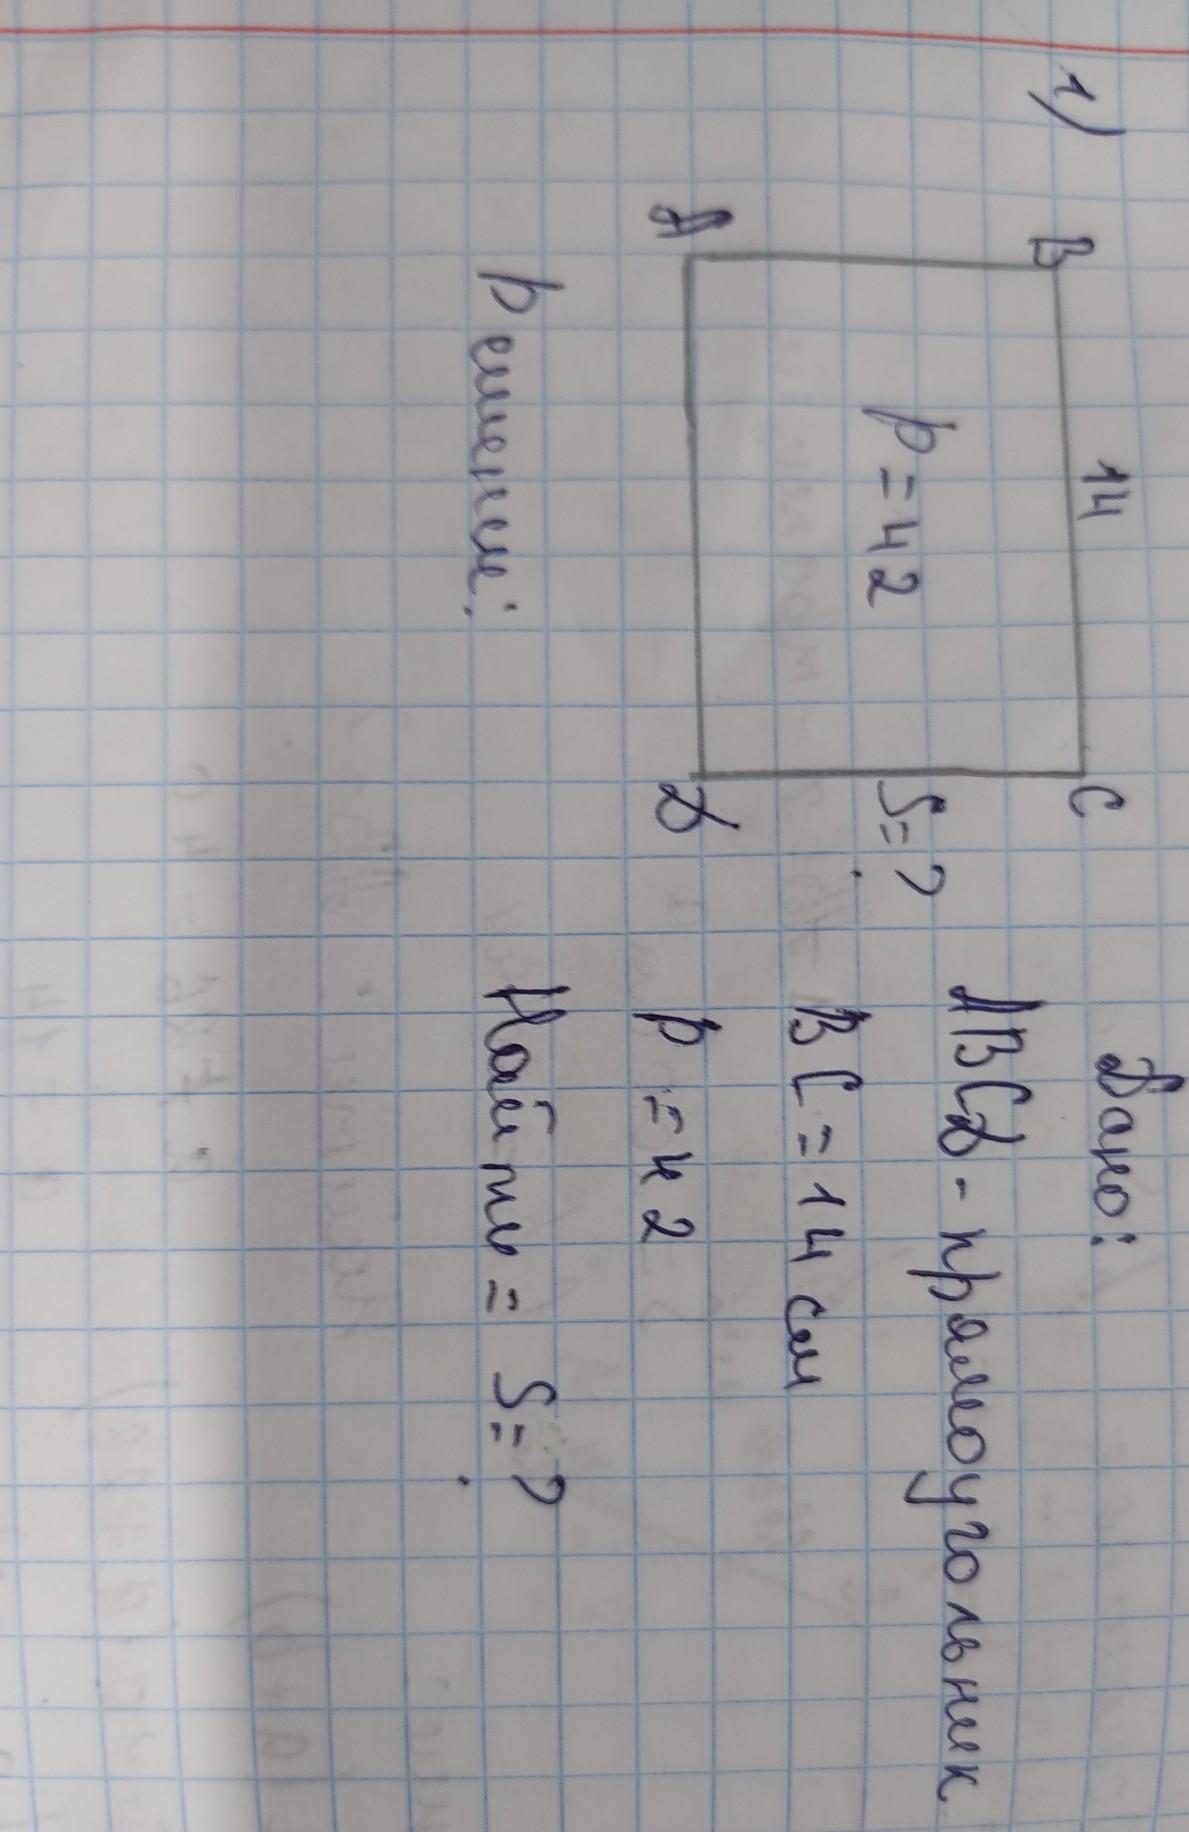 1)
B 14 C
P = 42
S = ?
A D
Дано:
ABCD - прямоугольник
BC = 14 см
P = 42
Найть = S = ?
Решение: